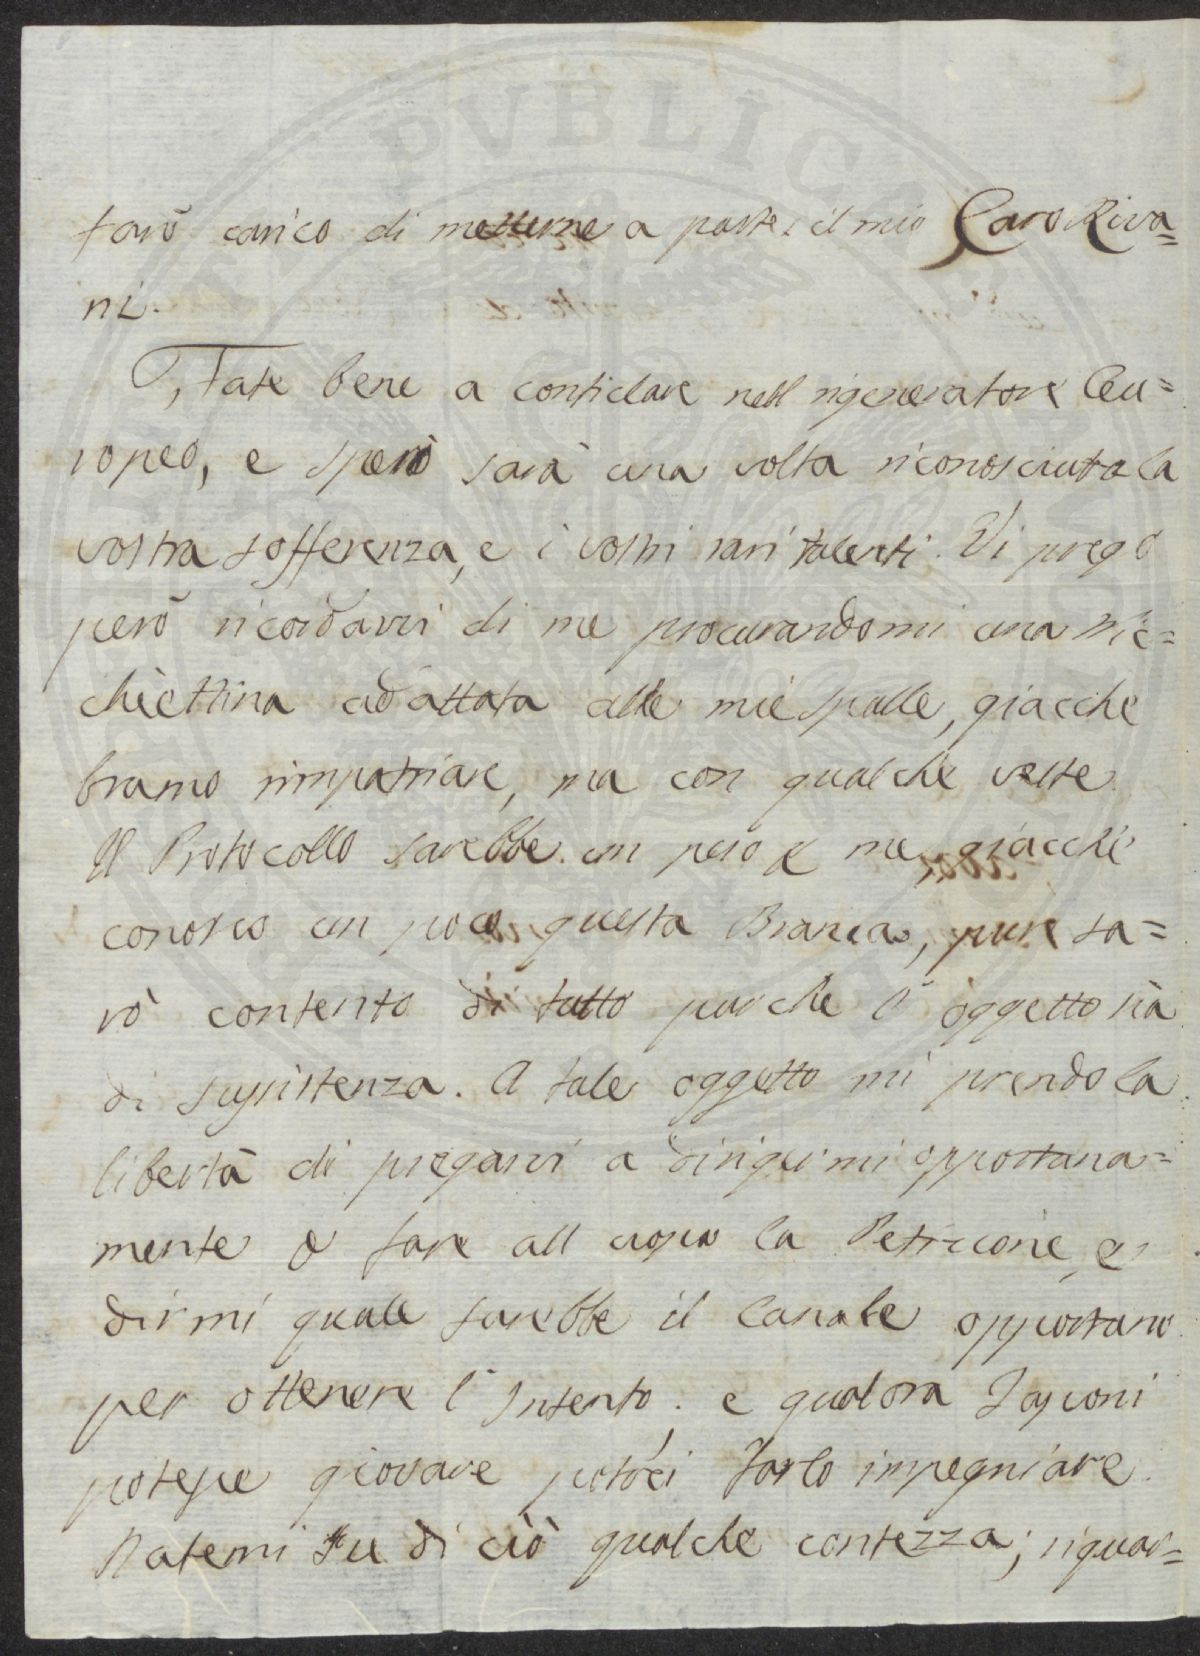 farò carico di metterne a parte il mio Caro Riva=
ni.
Fate bene a confidare nell rigeneratore Eu=
ropeo, e sperò sarà una volta riconosciuta la
vostra sofferenza, e i vostri rari talenti. Vi prego
però ricordarvi di me procurandomi una nic=
chiettina adattata alle mie spalle, giacche
bramo rimpatriare, ma con qualche veste.
Il Protocollo sarebbe un peso p me, giacche
conosco un poco questa Branca, pure sa=
rò contento di tutto purche l'oggetto sia
di sussistenza. A tale oggetto mi prendo la
libertà di pregarvi a dirigermi opportuna=
mente o fare all uopo la Petizione, e
dirmi quale sarebbe il Canale opportuno
per ottenere l'Intento; e qualora
potesse giovare farlo impegniare.
Datemi su di ciò qualche contezza; riguar=
PVBLICAE